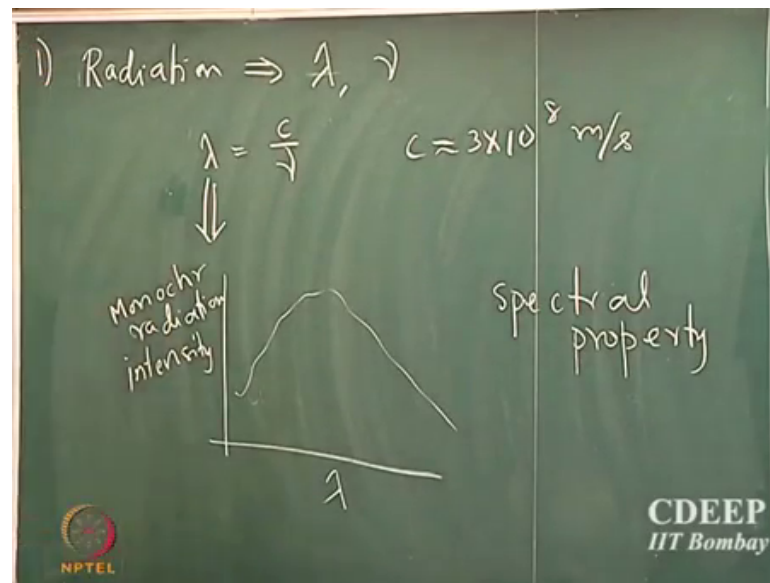 1) Radiation ⇒ λ, ν
λ = c/ν
c ≈ 3×10⁸ m/s
Monochr
radiation
intensity
λ
Spectral
property
NPTEL
CDEEP
IIT Bombay